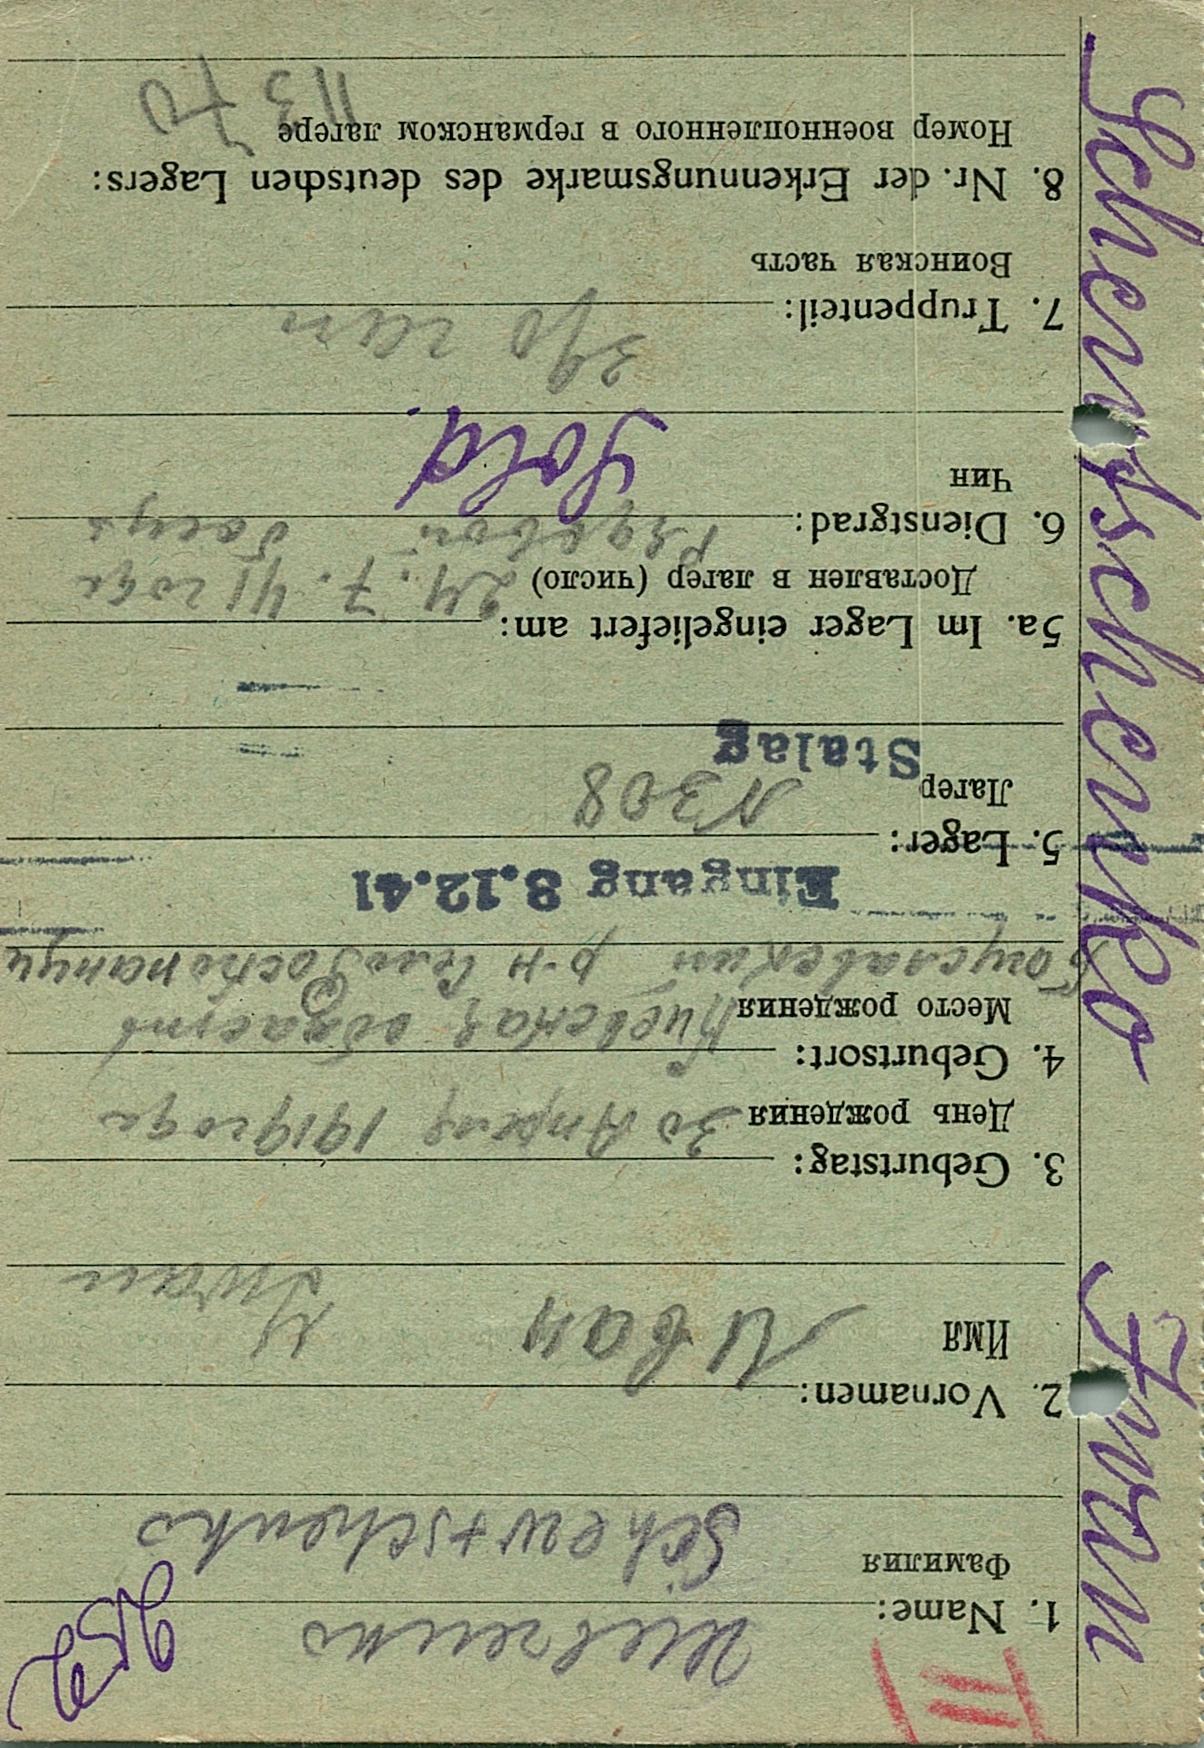 Schewtschenko Iwan
1. Name: Шевченко
Фамилия
Schewtschenko
2. Vornamen:
Имя
Иван
Iwan
3. Geburtstag:
День рождения 30 Апреля 1919 года
4. Geburtsort:
Место рождения Киевская область
р-н село
Eingang 8.12.41
5. Lager:
Лагер
N 308
Stalag
5a. Im Lager eingeliefert am:
Доставлен в лагер (число) 24. 7. 41 года
6. Dienstgrad: Рядовой
Чин
Sold.
7. Truppenteil:
Воинская часть
8. Nr. der Erkennungsmarke des deutschen Lagers:
Номер военнопленного в германском лагере
11370